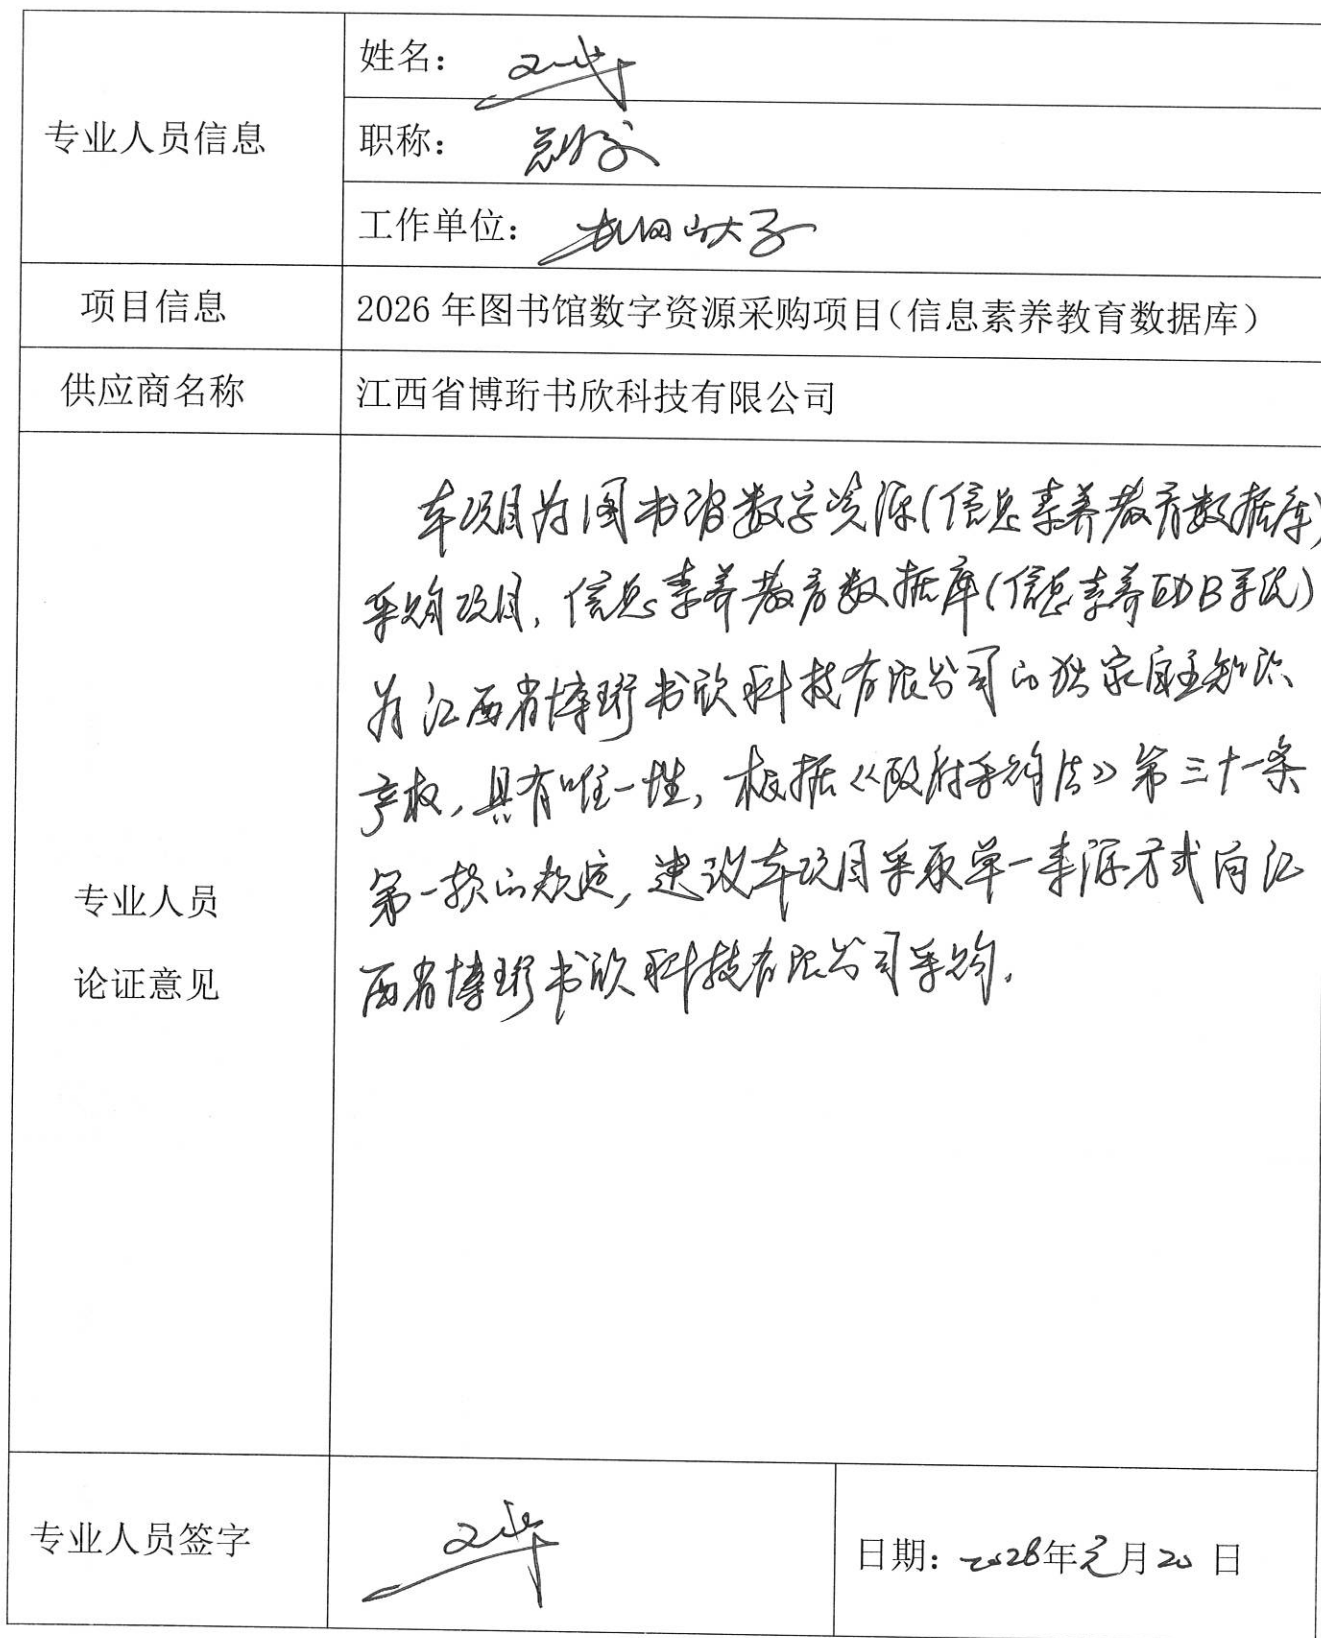 专业人员信息
姓名：
职称：
工作单位：
项目信息
2026 年图书馆数字资源采购项目（信息素养教育数据库）
供应商名称
江西省博珩书欣科技有限公司
专业人员
论证意见
本项目为图书馆数字资源(信息素养教育数据库)
采购项目，信息素养教育数据库(信息素养系统)
为江西省博珩书欣科技有限公司的独家自主知识
产权，具有唯一性，根据《政府采购法》第三十一条
第一款的规定，建议本项目采取单一来源方式向江
西省博珩书欣科技有限公司采购．
专业人员签字
日期：年月20日